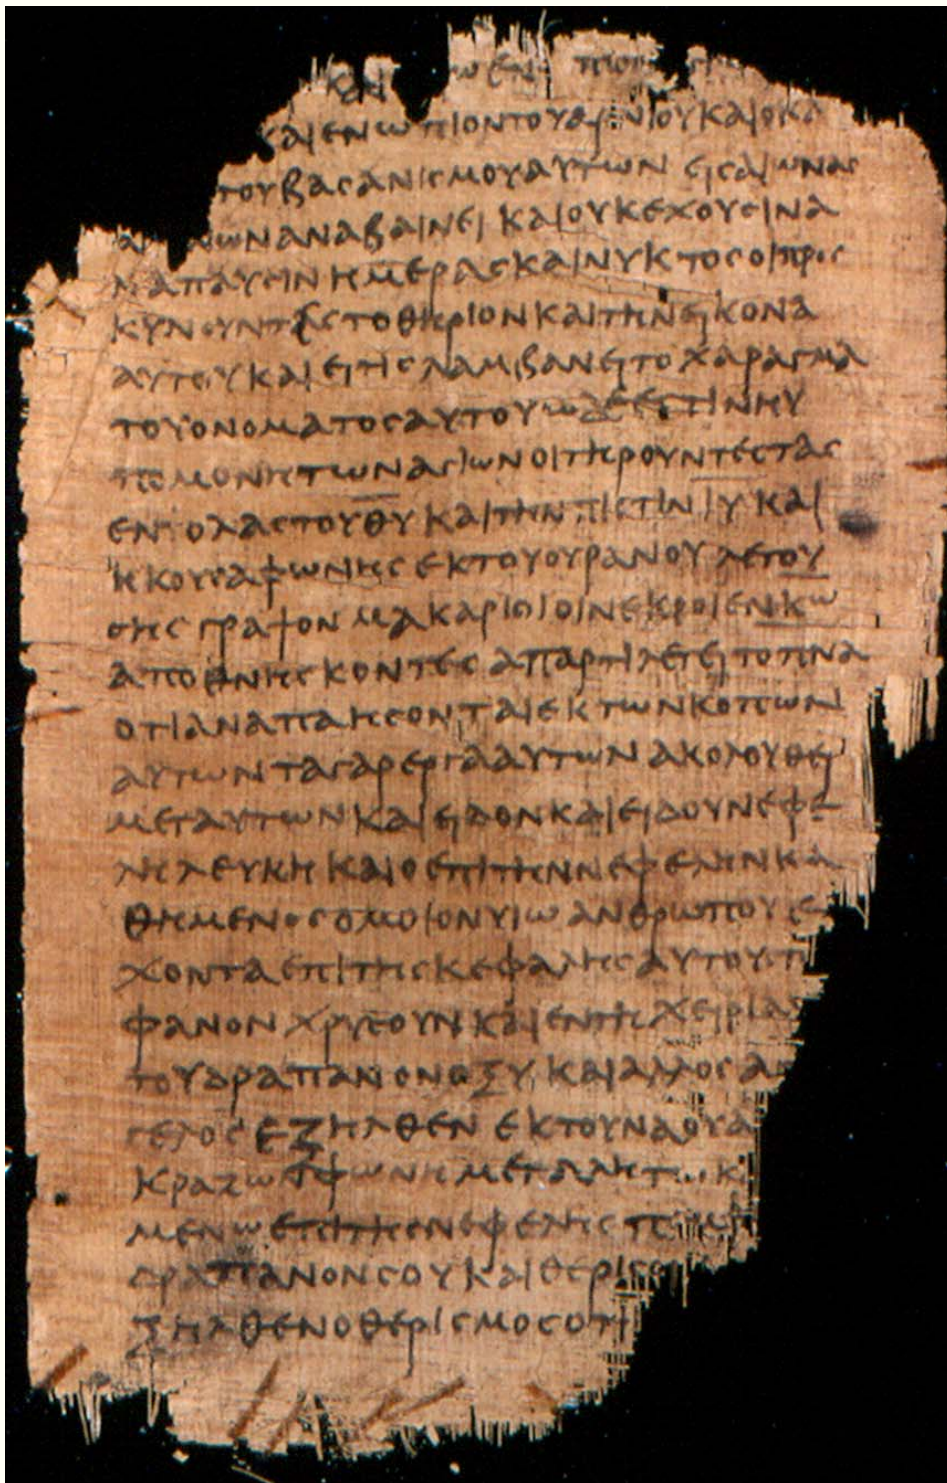 και ενωπιον του αρνιου και ο κα
του βασανισμου αυτων εις αιωνας
ων αναβαινει και ουκ εχουσιν α
ναπαυσιν ημερας και νυκτος οι προς
κυνουντες το θηριον και την εικονα
αυτου και ει τις λαμβανει το χαραγμα
του ονοματος αυτου ωδε εστιν η υ
πομονη των αγιων οι τηρουντες τας
εντολας του θυ και την πιστιν ιυ και
ηκουσα φωνης εκ του ουρανου λεγου
σης γραψον μακαριοι οι νεκροι εν κω
αποθνησκοντες απ αρτι λεγει το πνα
οτι αναπαησονται εκ των κοπων
αυτων τα γαρ εργα αυτων ακολουθει
μετ αυτων και ειδον και ειδου νεφε
λη λευκη και ο επι την νεφελην κα
θημενος ομοιον υιω ανθρωπου ε
χοντα επι της κεφαλης αυτου
φανον χρυσουν και εν τη χειρι α
του δραπανον οξυ και αλλος α
γελος εξηλθεν εκ του ναου α
κραζων φωνη μεγαλη τω κ
μενω επι της νεφελης
δραπανον σου και θερισο
ξηλθεν ο θερισμος οτι